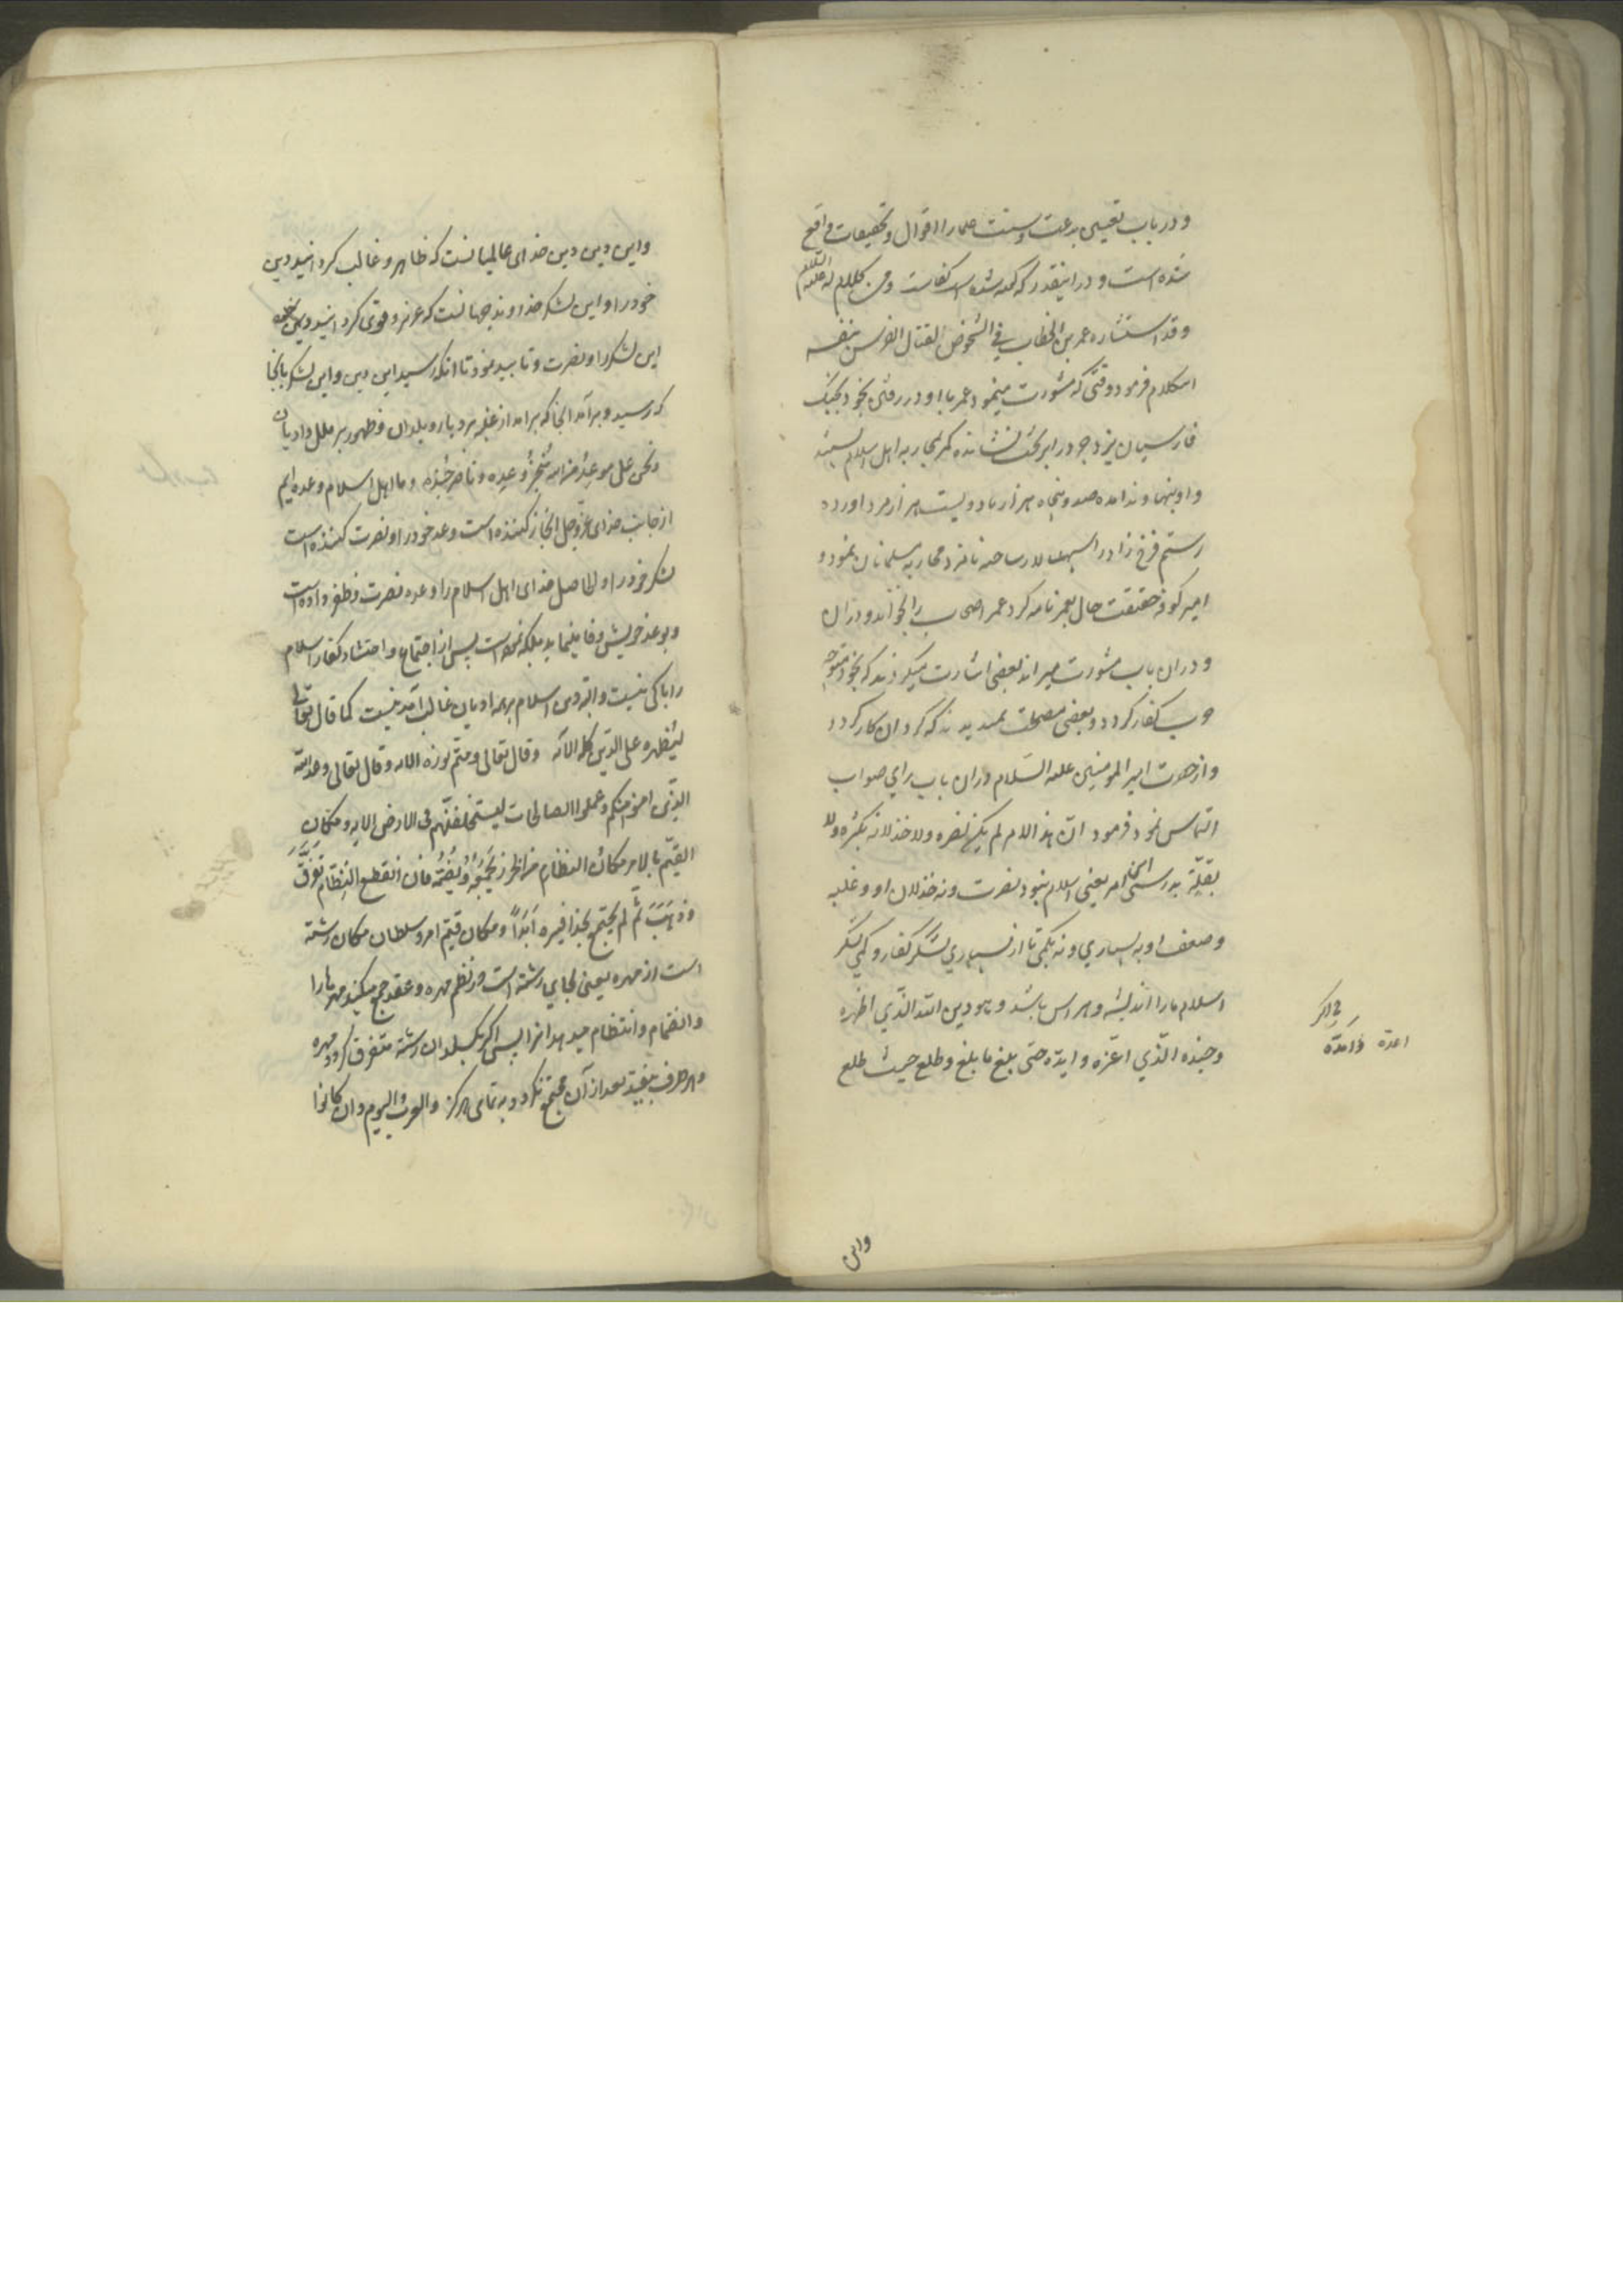 و در باب تعیین بدعت و سنت علما را اقوال و تحقیقات واقع
شده است و در اینقدر که گفته شده است کفایت است ومن کلام له علیه السلام
وقد استشاره عمر بن الخطاب فی الشخوص لقتال الفرس بنفسه
این کلام فرمود وقتی که مشورت مینمود عمر با او در رفتن بخود بجنگ
فارسیان یزدجرد را بر تخت نشانده کمر بمحاربه اهل اسلام بستند
و او بنهاوند آمده صد و پنجاه هزار یا دویست هزار مرد آورده
رستم فرخ زاد را سپهسالار ساخته نامزد محاربه مسلمانان نمود و
امیر کوفه حقیقت حال بعمر نامه کرد عمر اصحاب را بخواند و در ان
و دران باب مشورت میراند بعضی اشارت میکردند که بخود متوجه
حرب کفار گردد و بعضی مصلحت نمیدیدند که گرد ان کار گردد
و از حضرت امیر المومنین علیه السلام دران باب رای صواب
التماس نمود فرمود ان هذا الامر لم یکن نصره ولا خذلانه بکثرة ولا
بقلة بدرستی این امر یعنی اسلام نبود نصرت و نه خذلان او و غلبه
و ضعف او به بسیاری و نه بکمی تا از بسیاری لشکر کفار و کمی لشکر
اسلام ما را اندیشه و هراس باشد و هو دین الله الذی اظهره
وجنده الذی اعزه وایده حتی بلغ ما بلغ وطلع حیث طلع
اعده وامده
واین
و این دین دین خدای عالمیانست که ظاهر و غالب گردانید دین
خود را و این لشکر خداوند جهانست که عزیز و قوی گردانید
این لشکر را و نصرت و تایید نمود تا انکه رسید این دین و این لشکر بانجا
که رسید و برآمد انجا که برامد از غلبه بر دیار و بلدان و ظهور بر ملل و ادیان
ونحن علی موعود من الله منجز وعده وناصر جنده و ما اهل اسلام وعده ایم
از جانب خدای عز و جل انجاز کننده است وعد خود را و نصرت کننده است
لشکر خود را و الحاصل خدای اهل اسلام را وعده نصرت و ظفر داده است
و بوعد خویش وفا مینماید بلکه نموده است پس از اجتماع و احتشاد کفار اسلام
را باکی نیست و البته دین اسلام بر همه ادیان غالب آمدنیست کما قال تعالی
لیظهره علی الدین کله الآیه وقال تعالی ومتم نوره الایه وقال تعالی وعد الله
الذین امنوا منکم وعملوا الصالحات لیستخلفنهم فی الارض الایه ومکان
القیم بالامر مکان النظام من الخرز یجمعه ویضمه فان انقطع النظام تفرق
وذهب ثم لم یجتمع بحذافیره ابدا و مکان قیم امر و سلطان مکان رشته
است از مهره یعنی بجای رشته است در نظم مهره و عقد جمع میکند مهرها را
و انضمام و انتظام میدهد انرا پس اگر بگسلد ان رشته متفرق گردد مهره
و هر طرف بیفتد بعد از آن مجتمع نگردد به تمامی هرگز والعرب الیوم وان کانوا